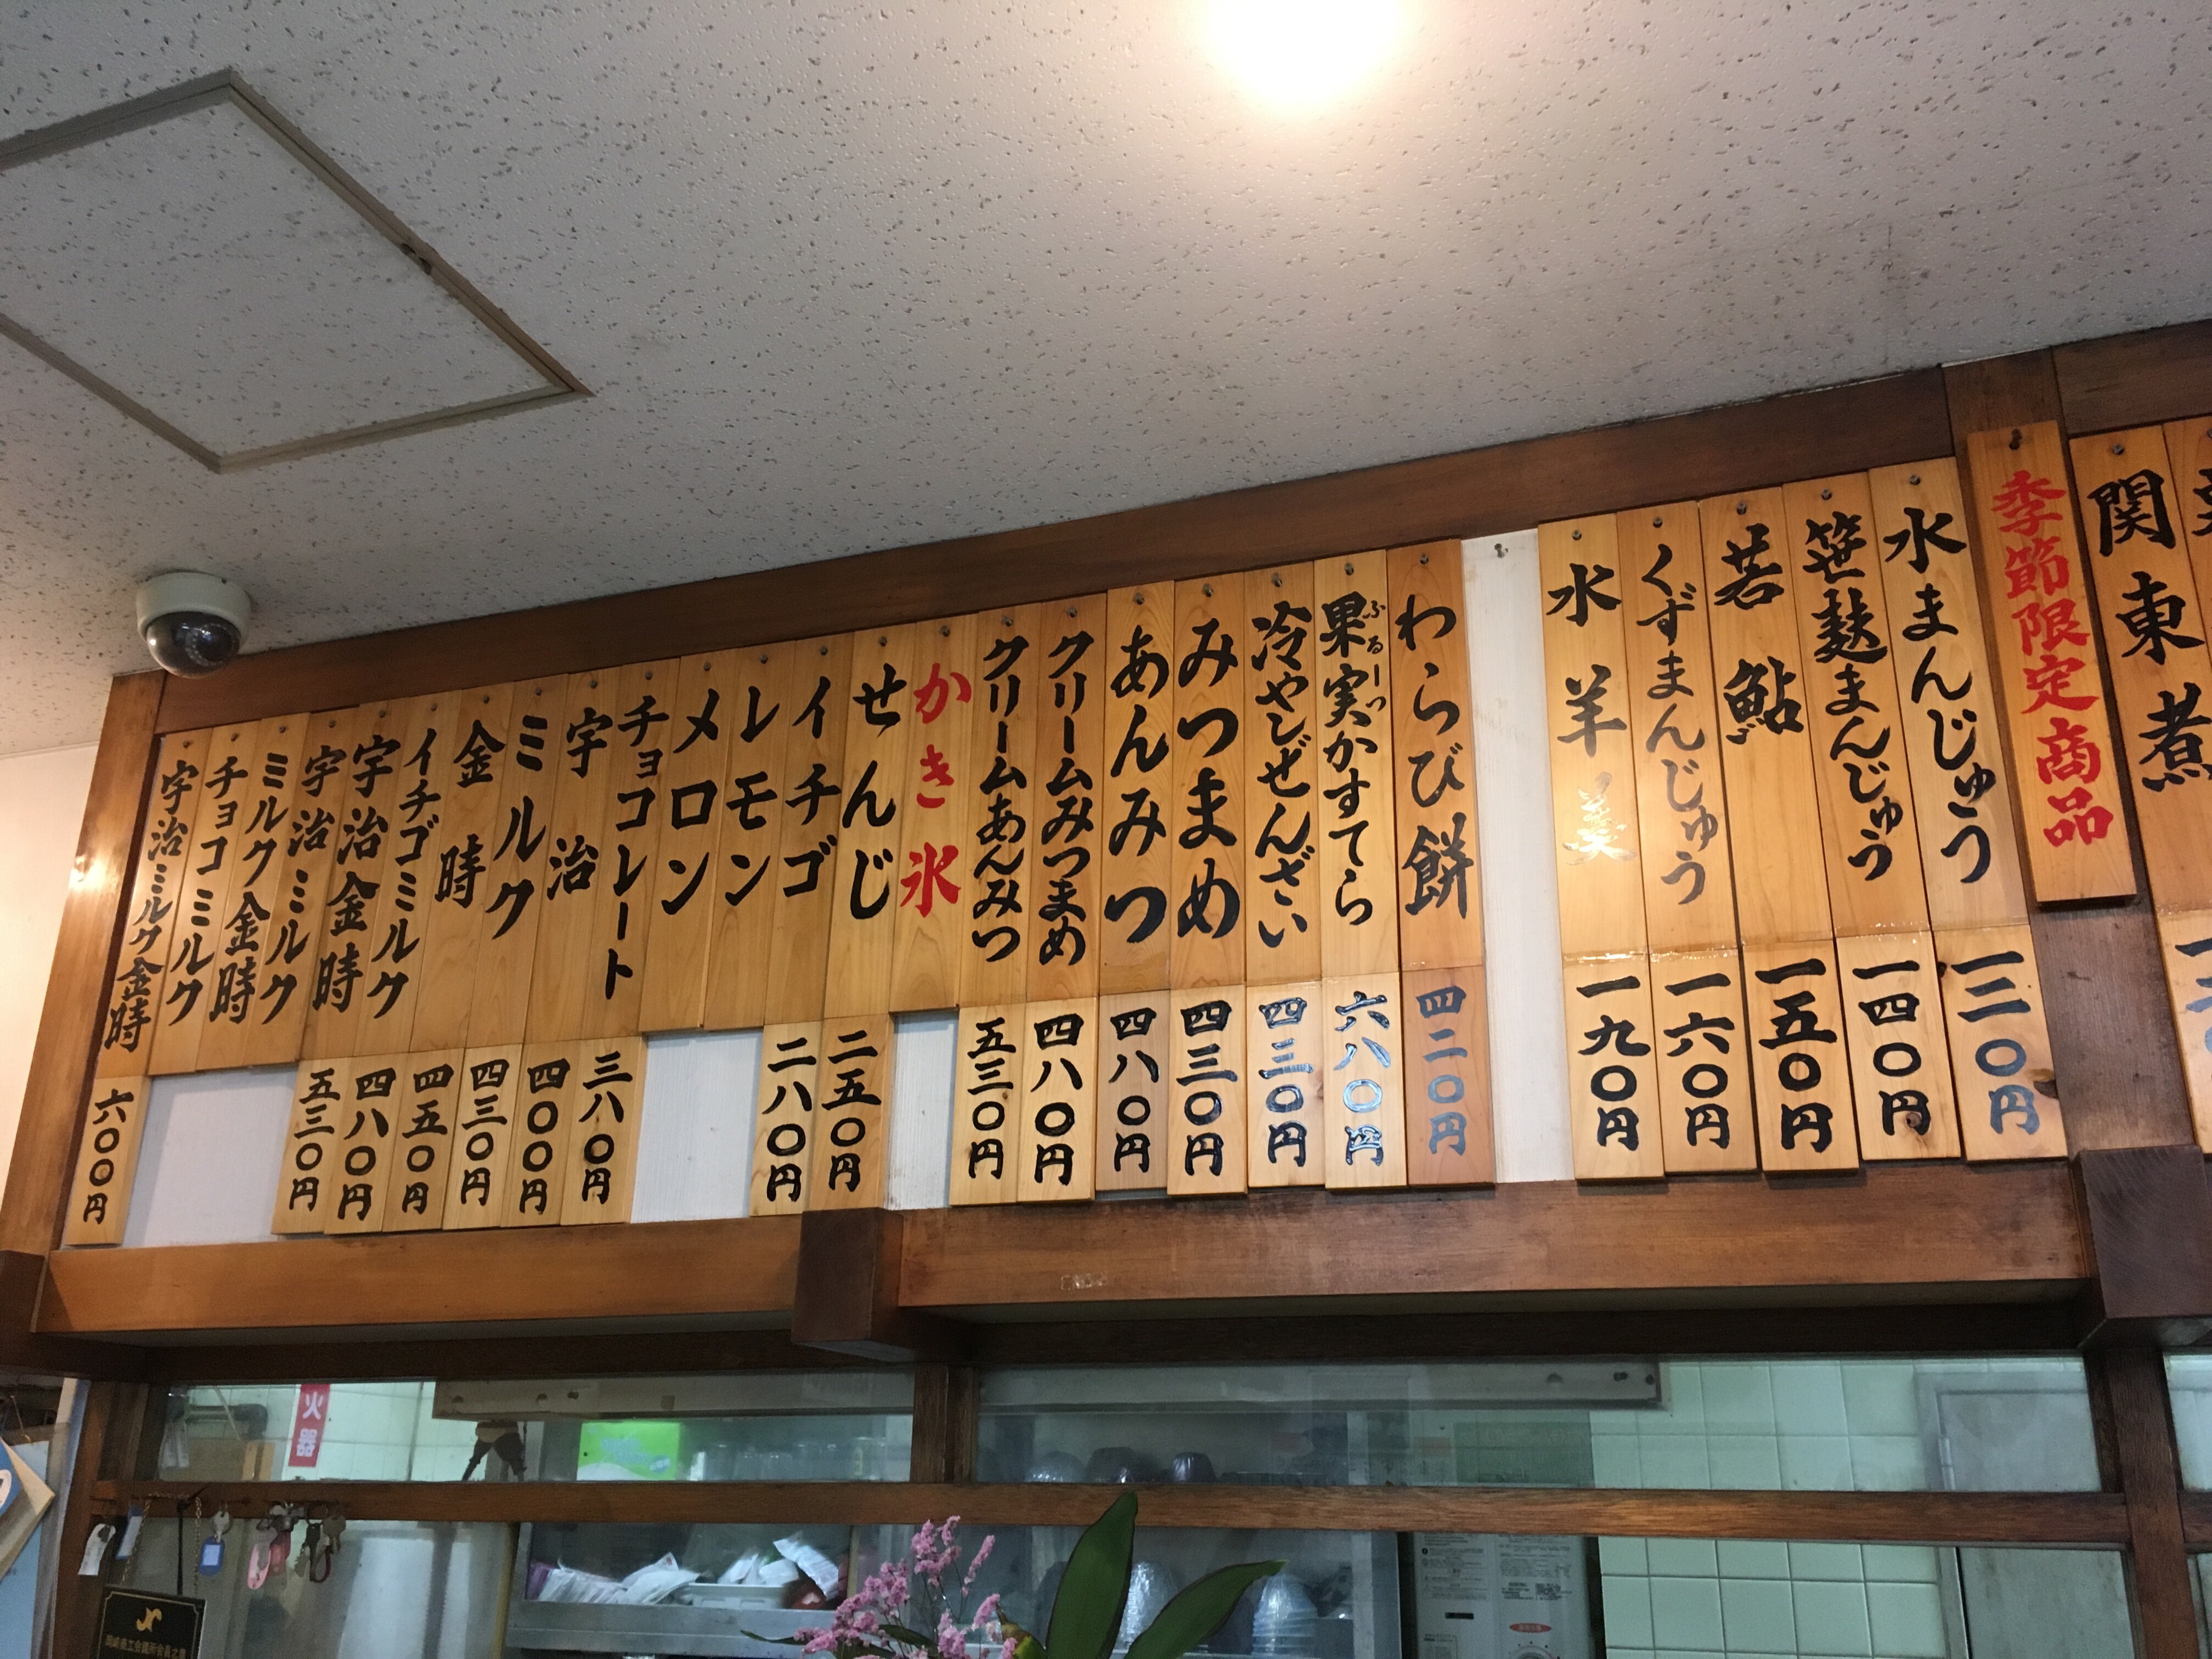 関東煮
季節限定商品
水まんじゅう
一三〇円
笹麩まんじゅう
一四〇円
若鮎
一五〇円
くずまんじゅう
一六〇円
水羊羹
一九〇円
わらび餅
四二〇円
果実かすてら
ふるーつ
六八〇円
冷やしぜんざい
四三〇円
みつまめ
四三〇円
あんみつ
四八〇円
クリームみつまめ
四八〇円
クリームあんみつ
五三〇円
かき氷
せんじ
二五〇円
イチゴ
二八〇円
レモン
メロン
チョコレート
三八〇円
宇治
四〇〇円
ミルク
四三〇円
金時
四五〇円
イチゴミルク
四八〇円
宇治金時
五三〇円
宇治ミルク
ミルク金時
チョコミルク
宇治ミルク金時
六〇〇円
火器